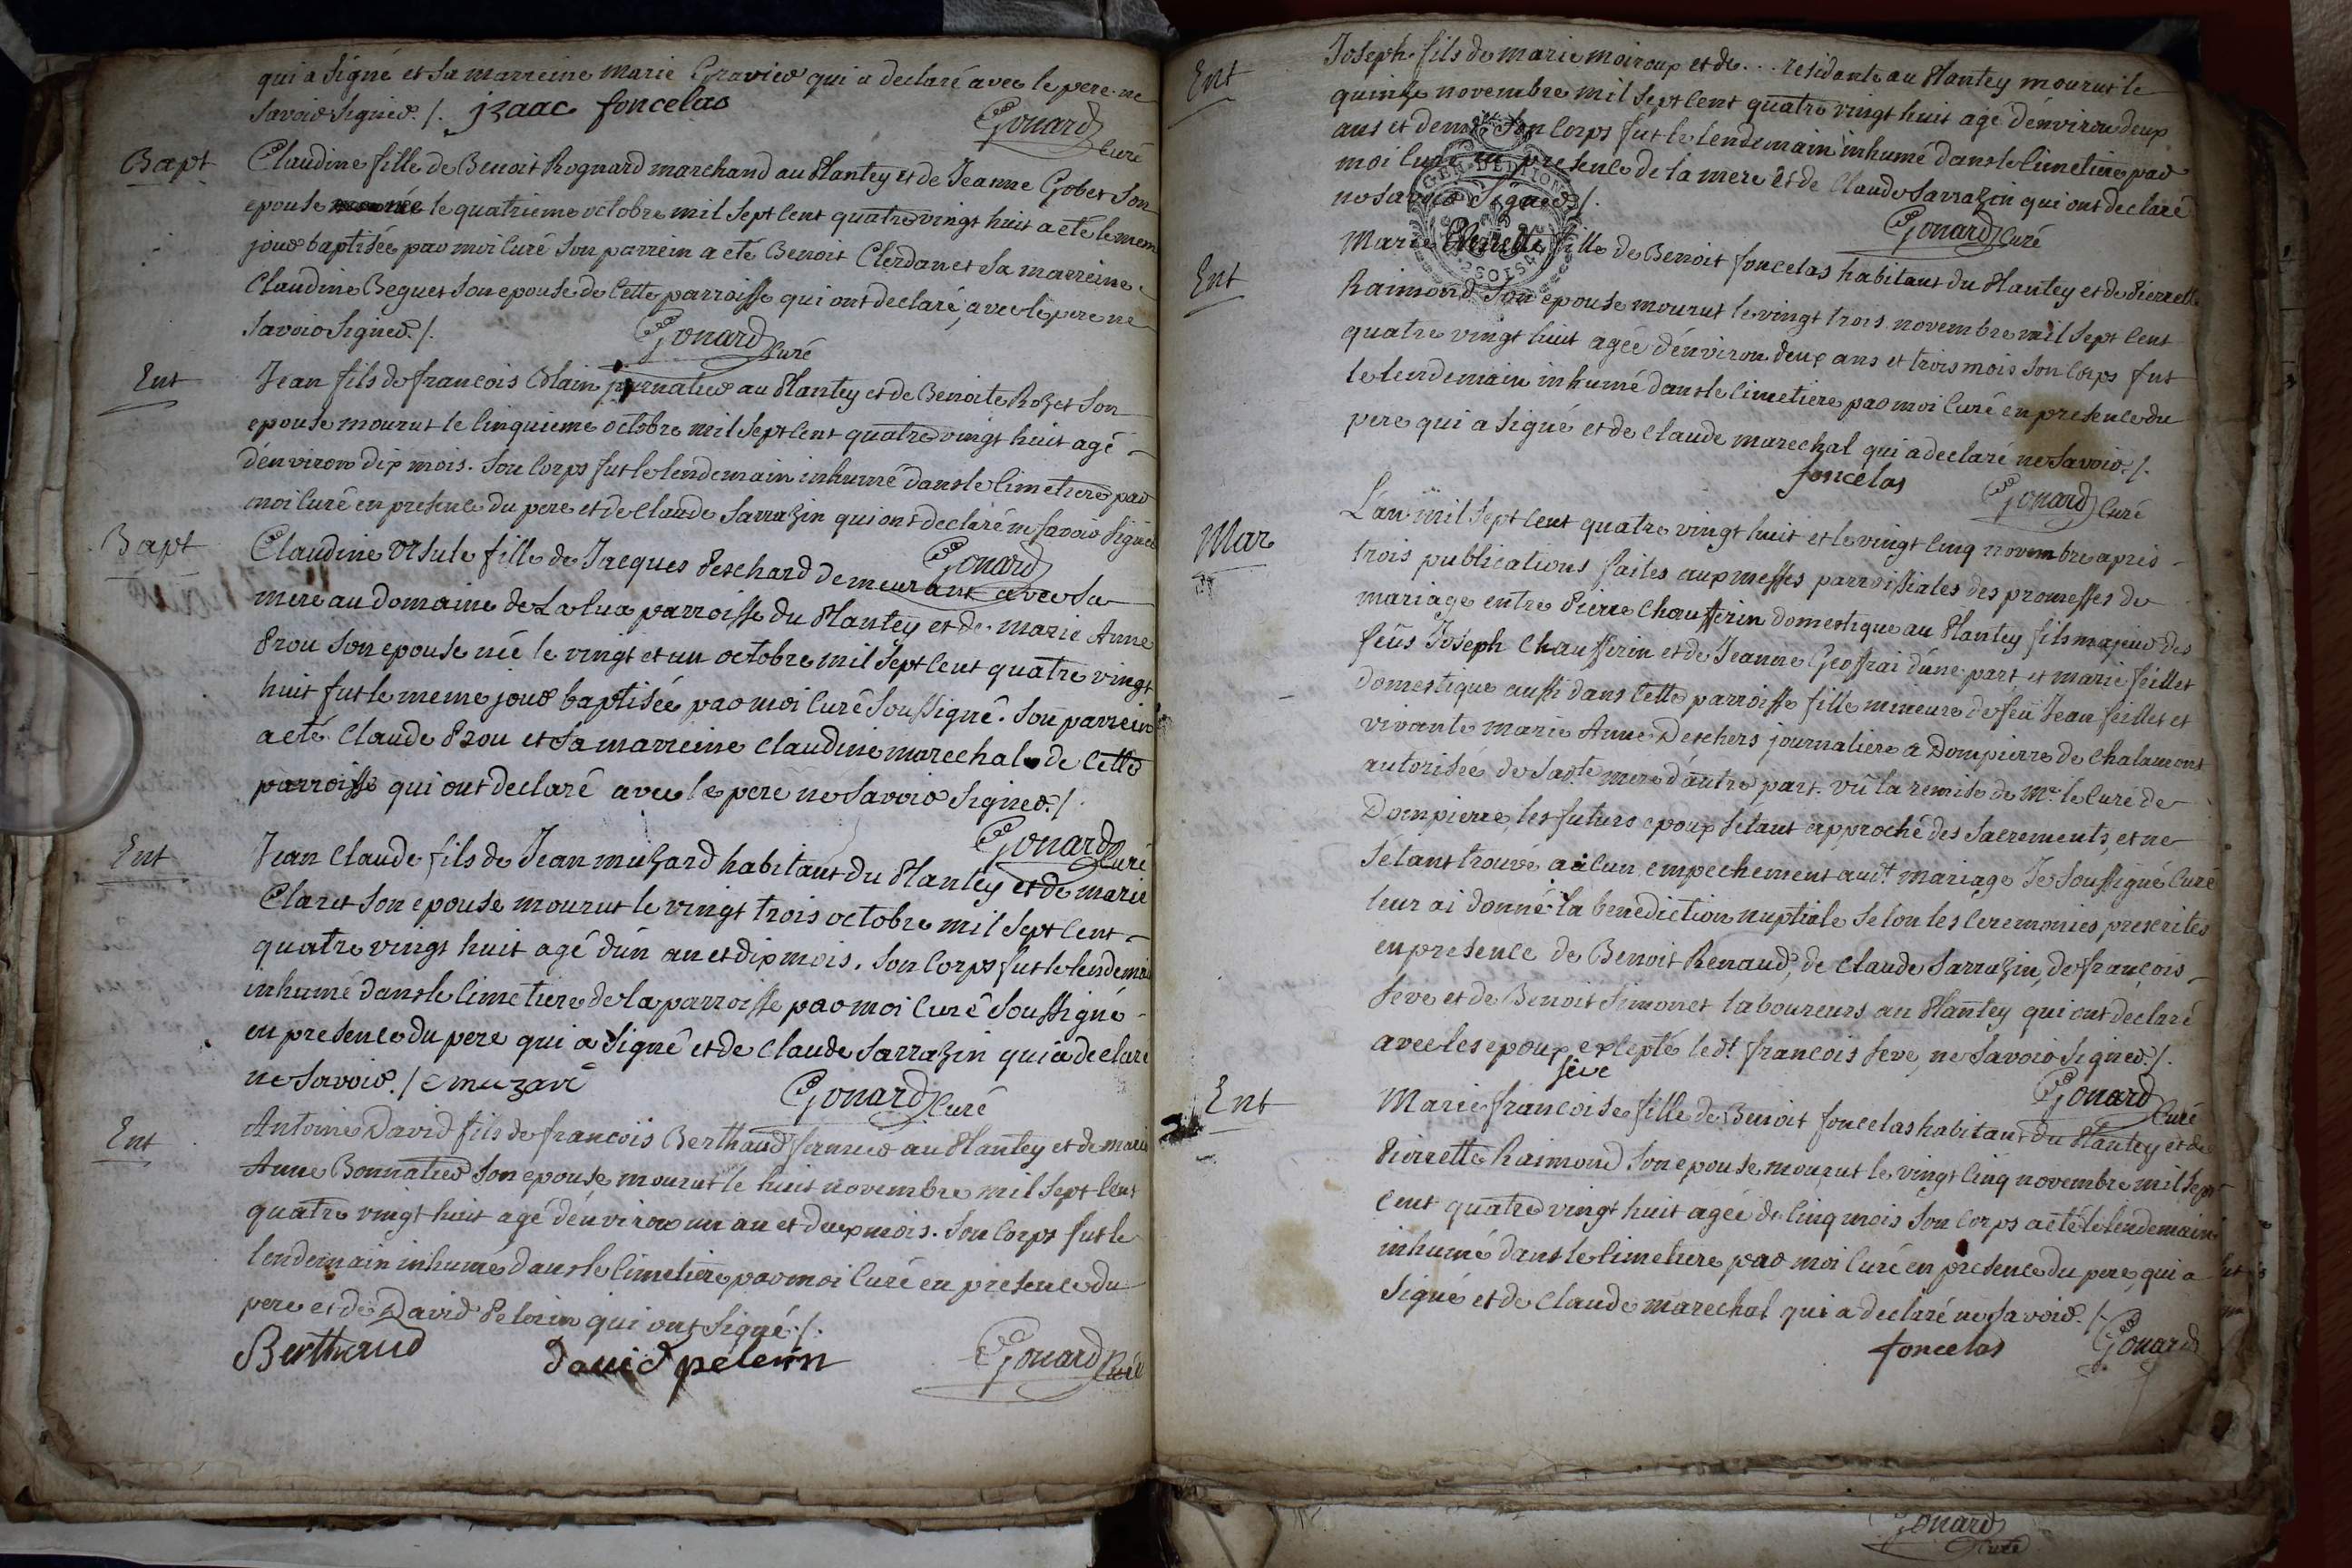 qui a signé et sa marreine marie Gravier qui a declaré avec le pere ne
savoir signer ./. jzaac foncelas
Gonard curé
Bapt
Claudine fille de Benoit Rognard marchand au Plantey et de Jeanne Gobet son
epouse née le quatrieme octobre mil sept cent quatre vingt huit a eté le mem
jour baptisée par moi curé son parrein a eté Benoit Clerdan et sa marreine
Claudine Beguet son epouse de cette parroisse qui ont declaré, avec le pere ne
savoir signer ./.
Gonard curé
Ent
Jean fils de francois Blain journalier au Plantey et de Benoite Rozet son
epouse mourut le cinquieme octobre mil sept cent quatre vingt huit agé
d'environ dix mois. son corps fut le lendemain inhumé dans le cimetiere par
moi curé en presence du pere et de claude sarrazin qui ont declaré ne savoir signer
Gonard
Bapt
Claudine ursule fille de Jacques Peschard demeurant avec sa
mere au domaine de La lua parroisse du Plantey et de marie Anne
Prou son epouse née le vingt et un octobre mil sept cent quatre vingt
huit fut le meme jour baptisée par moi curé soussigné. son parrein
a eté claude Prou et sa marreine claudine marechal de cette
parroisse qui ont declaré avec le pere ne savoir signer ./.
Gonard curé
Ent
Jean claude fils de Jean muzard habitant du Plantey et de marie
Claret son epouse mourut le vingt trois octobre mil sept cent
quatre vingt huit agé d'un an et dix mois. son corps fut le lendemain
inhumé dans le cimetiere de la parroisse par moi curé soussigné
en presence du pere qui a signé et de claude sarrazin qui a declaré
ne savoir ./. muzard
Gonard curé
Ent
Antoine David fils de francois Berthaud fermier au Plantey et de marie
Anne Bonnatier son epouse mourut le huit novembre mil sept cent
quatre vingt huit agé d'environ un an et deux mois. son corps fut le
lendemain inhumé dans le cimetiere par moi curé en presence du
pere et de David Pelerin qui ont signé ./.
Berthaud david pelerin Gonard curé
Ent
Joseph fils de marie moiroux et de ... residante au Plantey mourut le
quinze novembre mil sept cent quatre vingt huit agé d'environ deux
ans et demi son corps fut le lendemain inhumé dans le cimetiere par
moi curé en presence de la mere et de claude sarrazin qui ont declaré
ne savoir signer ./.
GEN DE LYON
2 SOLS 4 D
Gonard curé
Ent
Marie Pierrette fille de Benoit foncelas habitant du Plantey et de Pierrette
Raimond son epouse mourut le vingt trois novembre mil sept cent
quatre vingt huit agée d'environ deux ans et trois mois son corps fut
le lendemain inhumé dans le cimetiere par moi curé en presence du
pere qui a signé et de claude marechal qui a declaré ne savoir ./.
foncelas Gonard curé
Mar
L'an mil sept cent quatre vingt huit et le vingt cinq novembre apres
trois publications faites aux messes parroissiales des promesses de
mariage entre Pierre Chaufferin domestique au Plantey fils majeur des
feûs Joseph Chaufferin et de Jeanne Geoffrai d'une part et marie feillet
domestique aussi dans cette parroisse fille mineure de feû Jean feillet et
vivante marie Anne Deschers journaliere a Dompierre de Chalamont
autorisée de sadte mere d'autre part. vû la remise de Mr. le curé de
Dompierre, les futurs epoux setant approché des sacrements, et ne
s'étant trouvé aucun empechement audt mariage Je soussigné curé
leur ai donné la benediction nuptiale selon les ceremonies prescrites
en presence de Benoit Renaud, de claude sarrazin, de françois
seve et de Benoit simonet laboureurs au Plantey qui ont declaré
avec les epoux excepté ledt francois seve, ne savoir signer ./.
seve
Gonard curé
Ent
Marie francoise fille de Benoit foncelas habitant du Plantey et de
Pierrette Raimond son epouse mourut le vingt cinq novembre mil sept
cent quatre vingt huit agée de cinq mois son corps a eté le lendemain
inhumé dans le cimetiere par moi curé en presence du pere qui a
signé et de claude marechal qui a declaré ne savoir ./.
foncelas Gonard
Gonard
curé